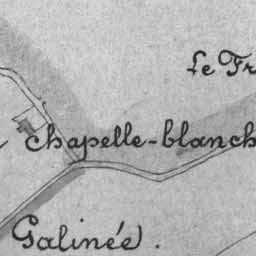 Le Fr
chapelle-blanch
Galinée.